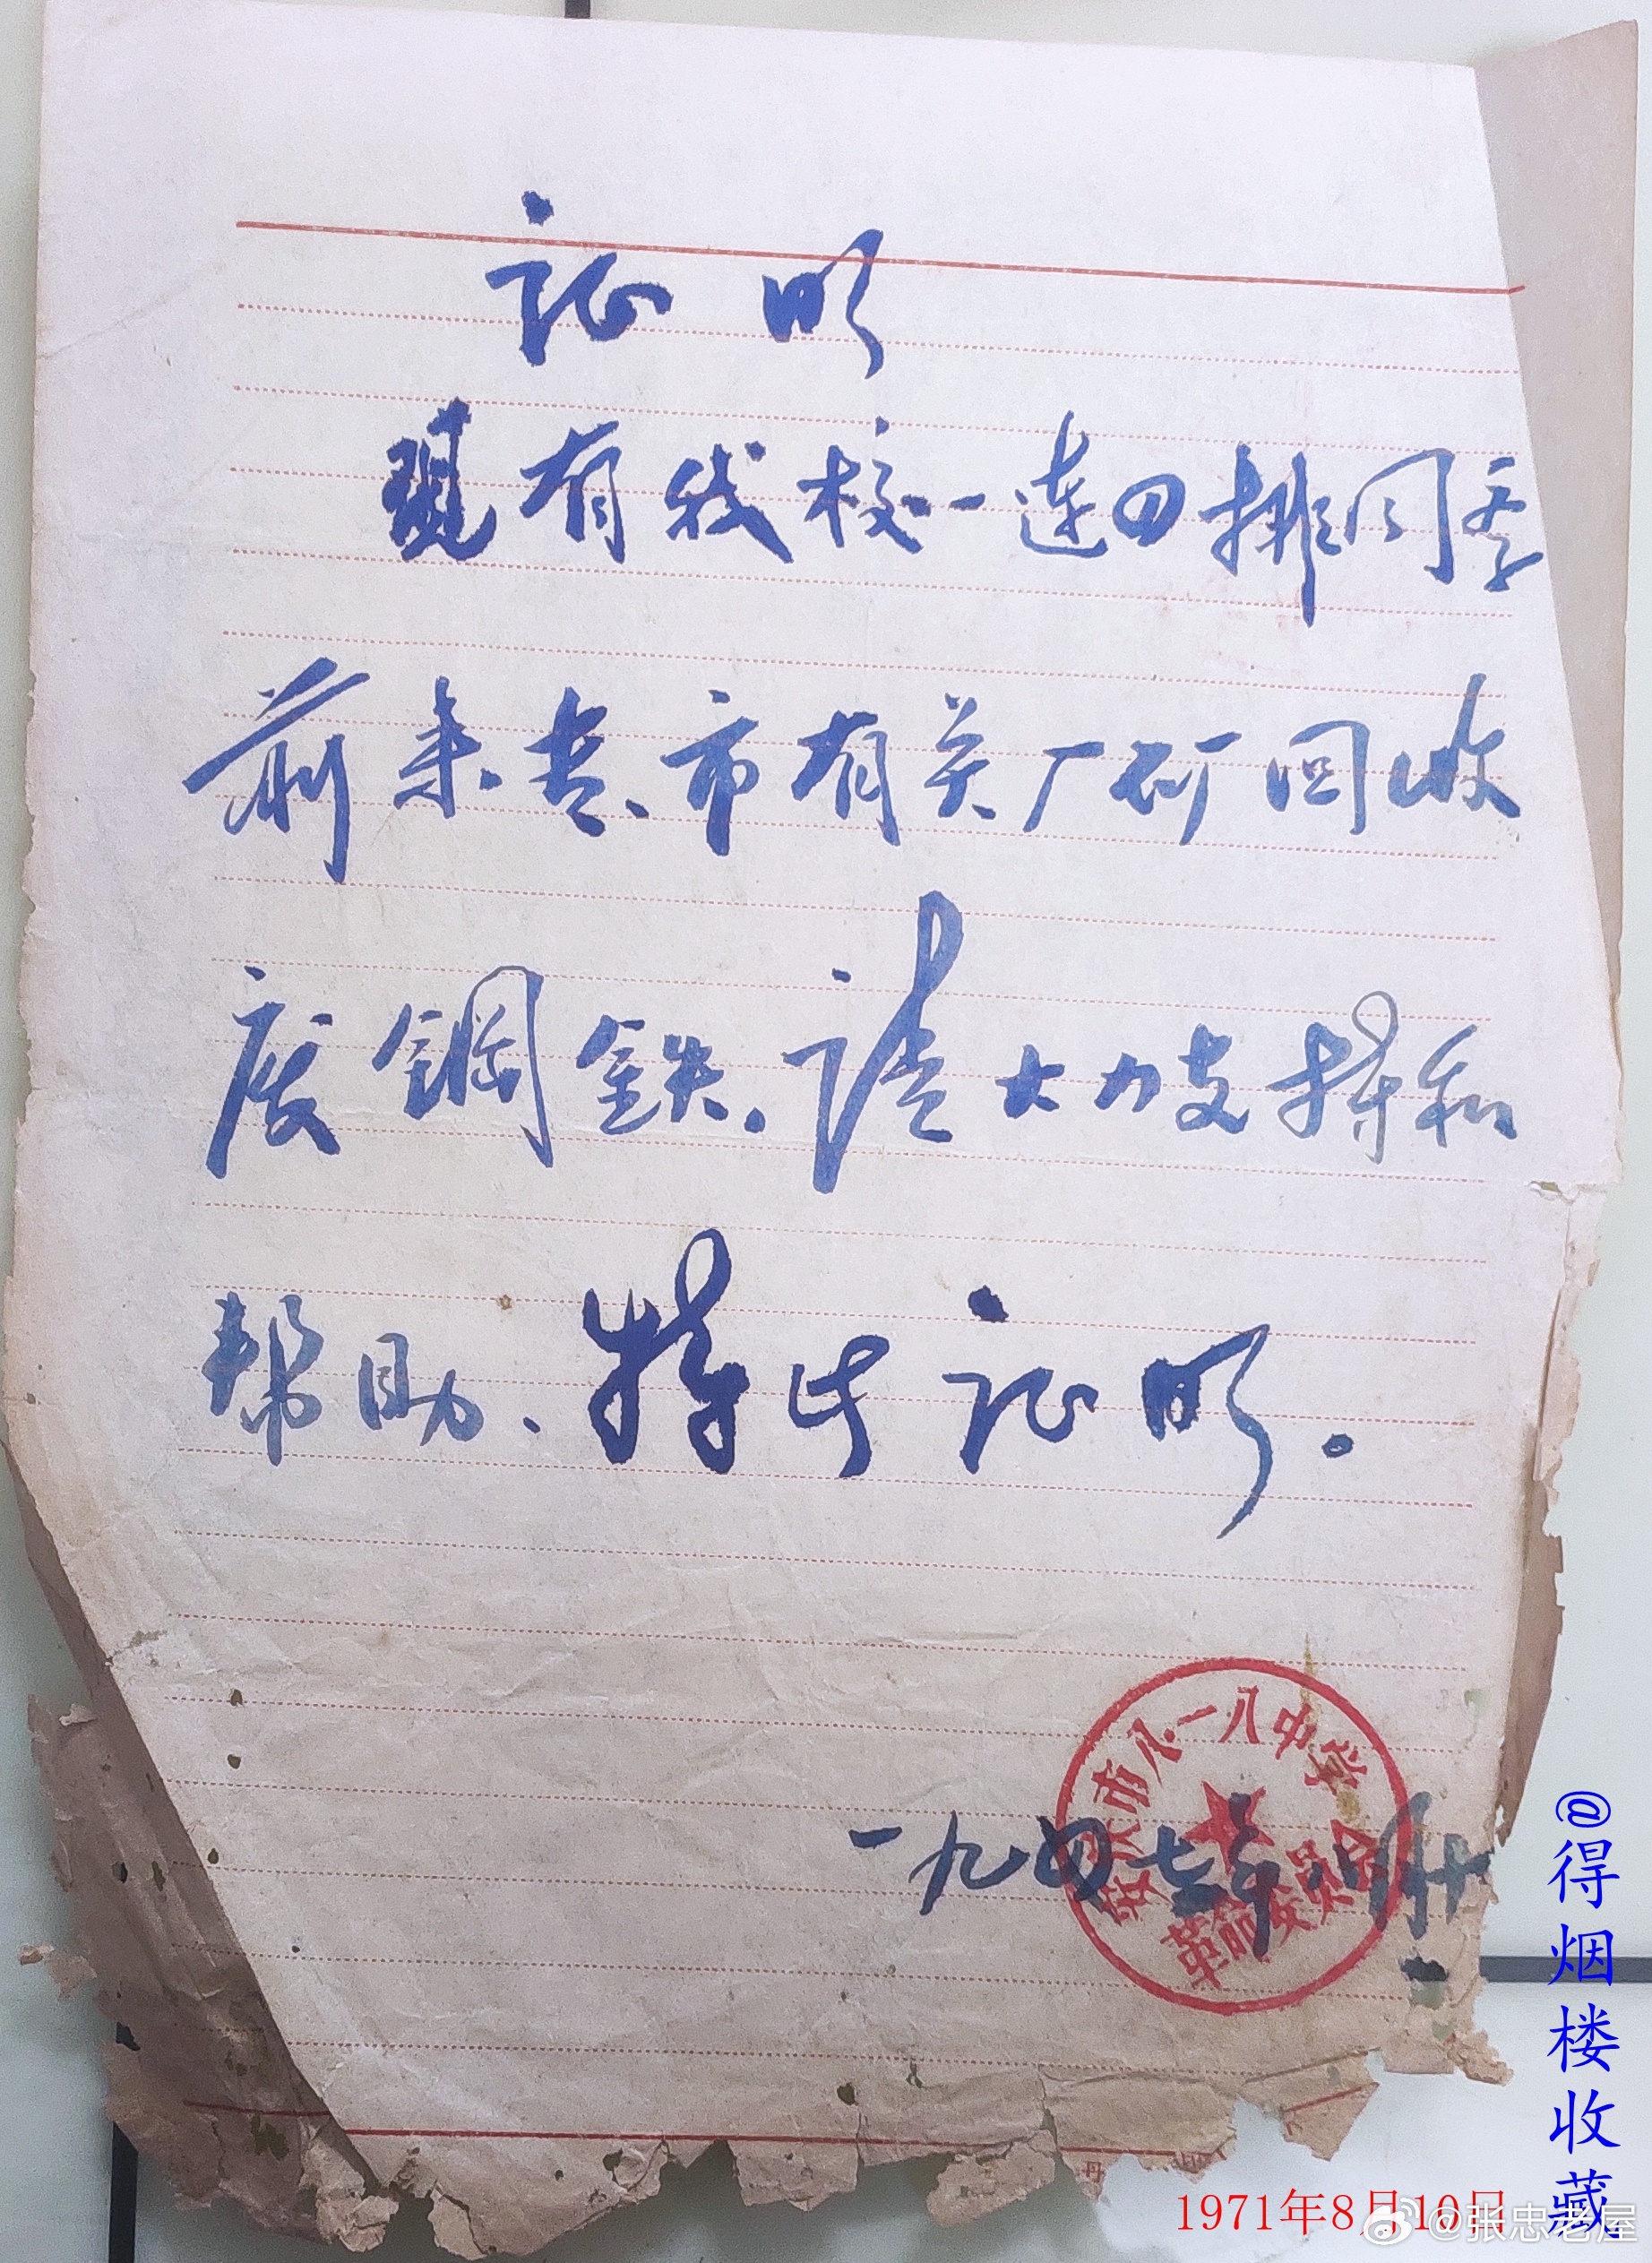 证明
现有我校一连四排同学
前来贵市有关厂矿回收
废钢铁，请大力支持和
帮助、特此证明。
市八一八中学
革命委员会
一九 七 年八月十
1971年8月10日
@得烟楼收藏
@张忠老屋